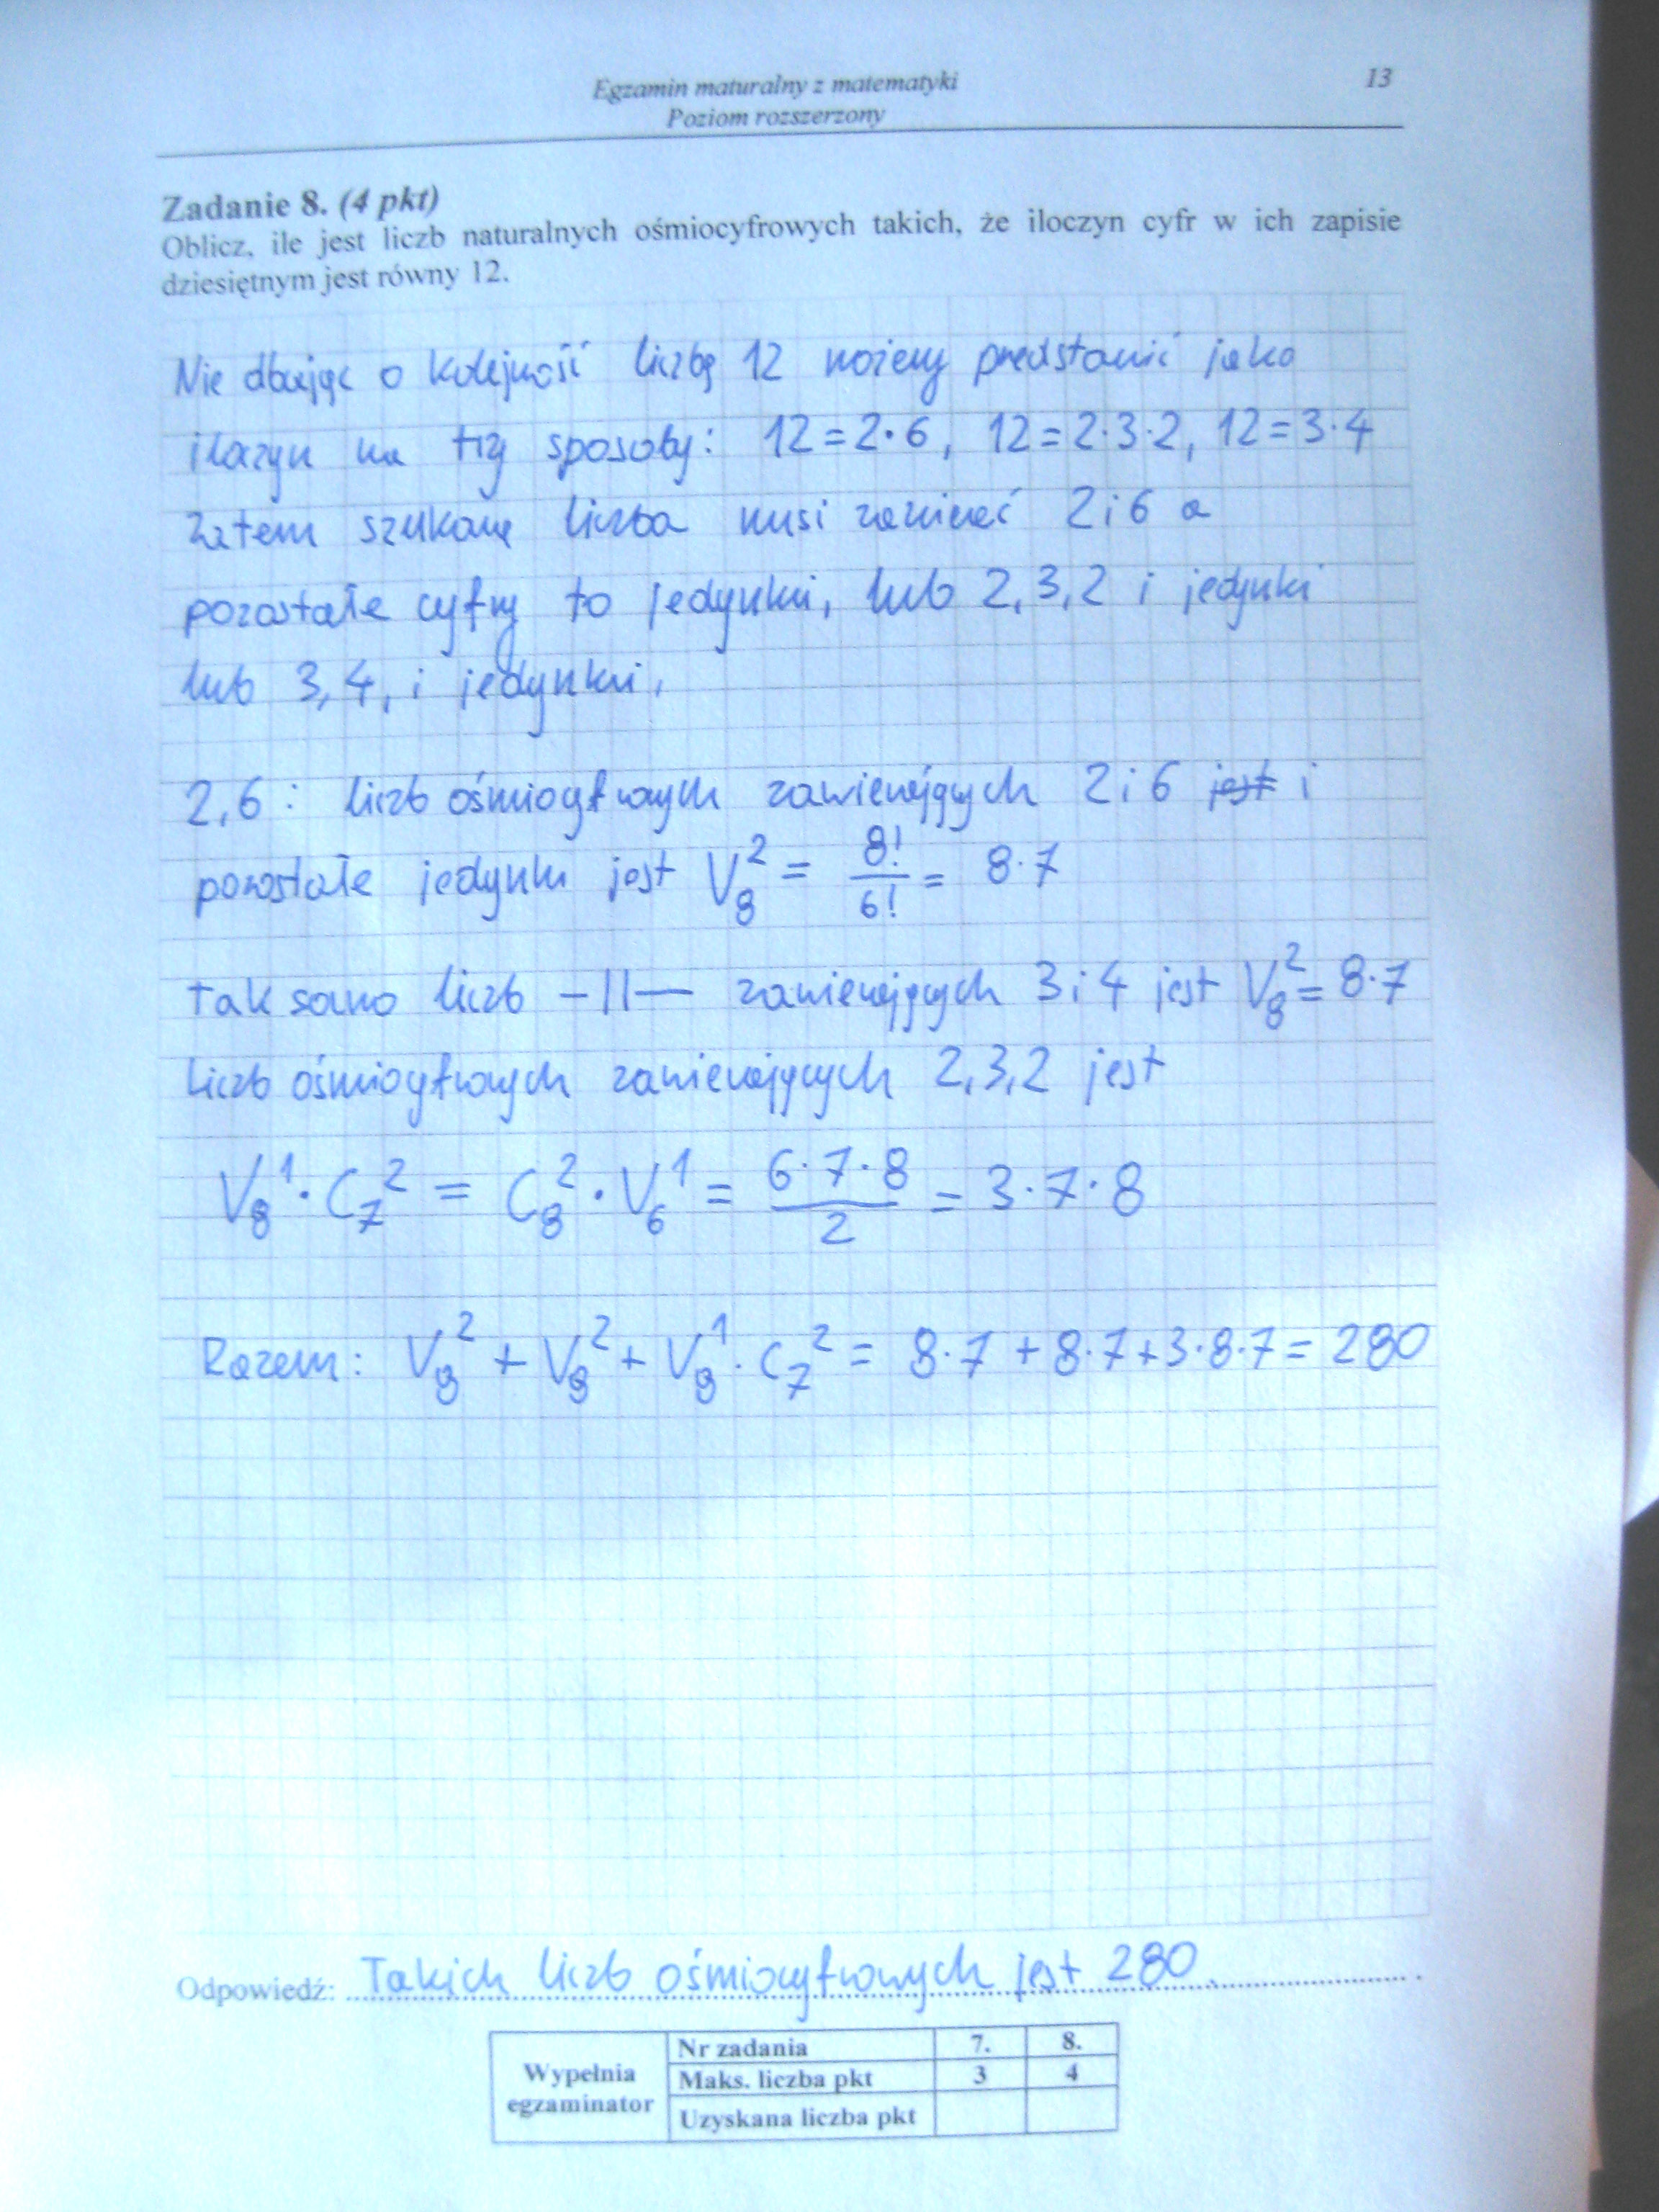 Egzamin maturalny z matematyki
Poziom rozszerzony
13
Zadanie 8. (4 pkt)
Oblicz, ile jest liczb naturalnych ośmiocyfrowych takich, że iloczyn cyfr w ich zapisie
dziesiętnym jest równy 12.
Nie dbając o kolejność liczbę 12 możemy przedstawić jako
iloczyn na trzy sposoby: 12 = 2·6, 12 = 2·3·2, 12 = 3·4
Zatem szukana liczba musi zawierać 2 i 6 a
pozostałe cyfry to jedynki, lub 2,3,2 i jedynki
lub 3,4, i jedynki.
2,6 : liczb ośmiocyfrowych zawierających 2 i 6 jest i
pozostałe jedynki jest V₈² = 8!/6! = 8·7
Tak samo liczb –||– zawierających 3 i 4 jest V₈² = 8·7
Liczb ośmiocyfrowych zawierających 2,3,2 jest
V₈¹ · C₇² = C₈² · V₆¹ = 6·7·8/2 = 3·7·8
Razem: V₈² + V₈² + V₈¹ · C₇² = 8·7 + 8·7 + 3·8·7 = 280
Odpowiedź: Takich liczb ośmiocyfrowych jest 280.
Wypełnia egzaminator
Nr zadania 7. 8.
Maks. liczba pkt 3 4
Uzyskana liczba pkt